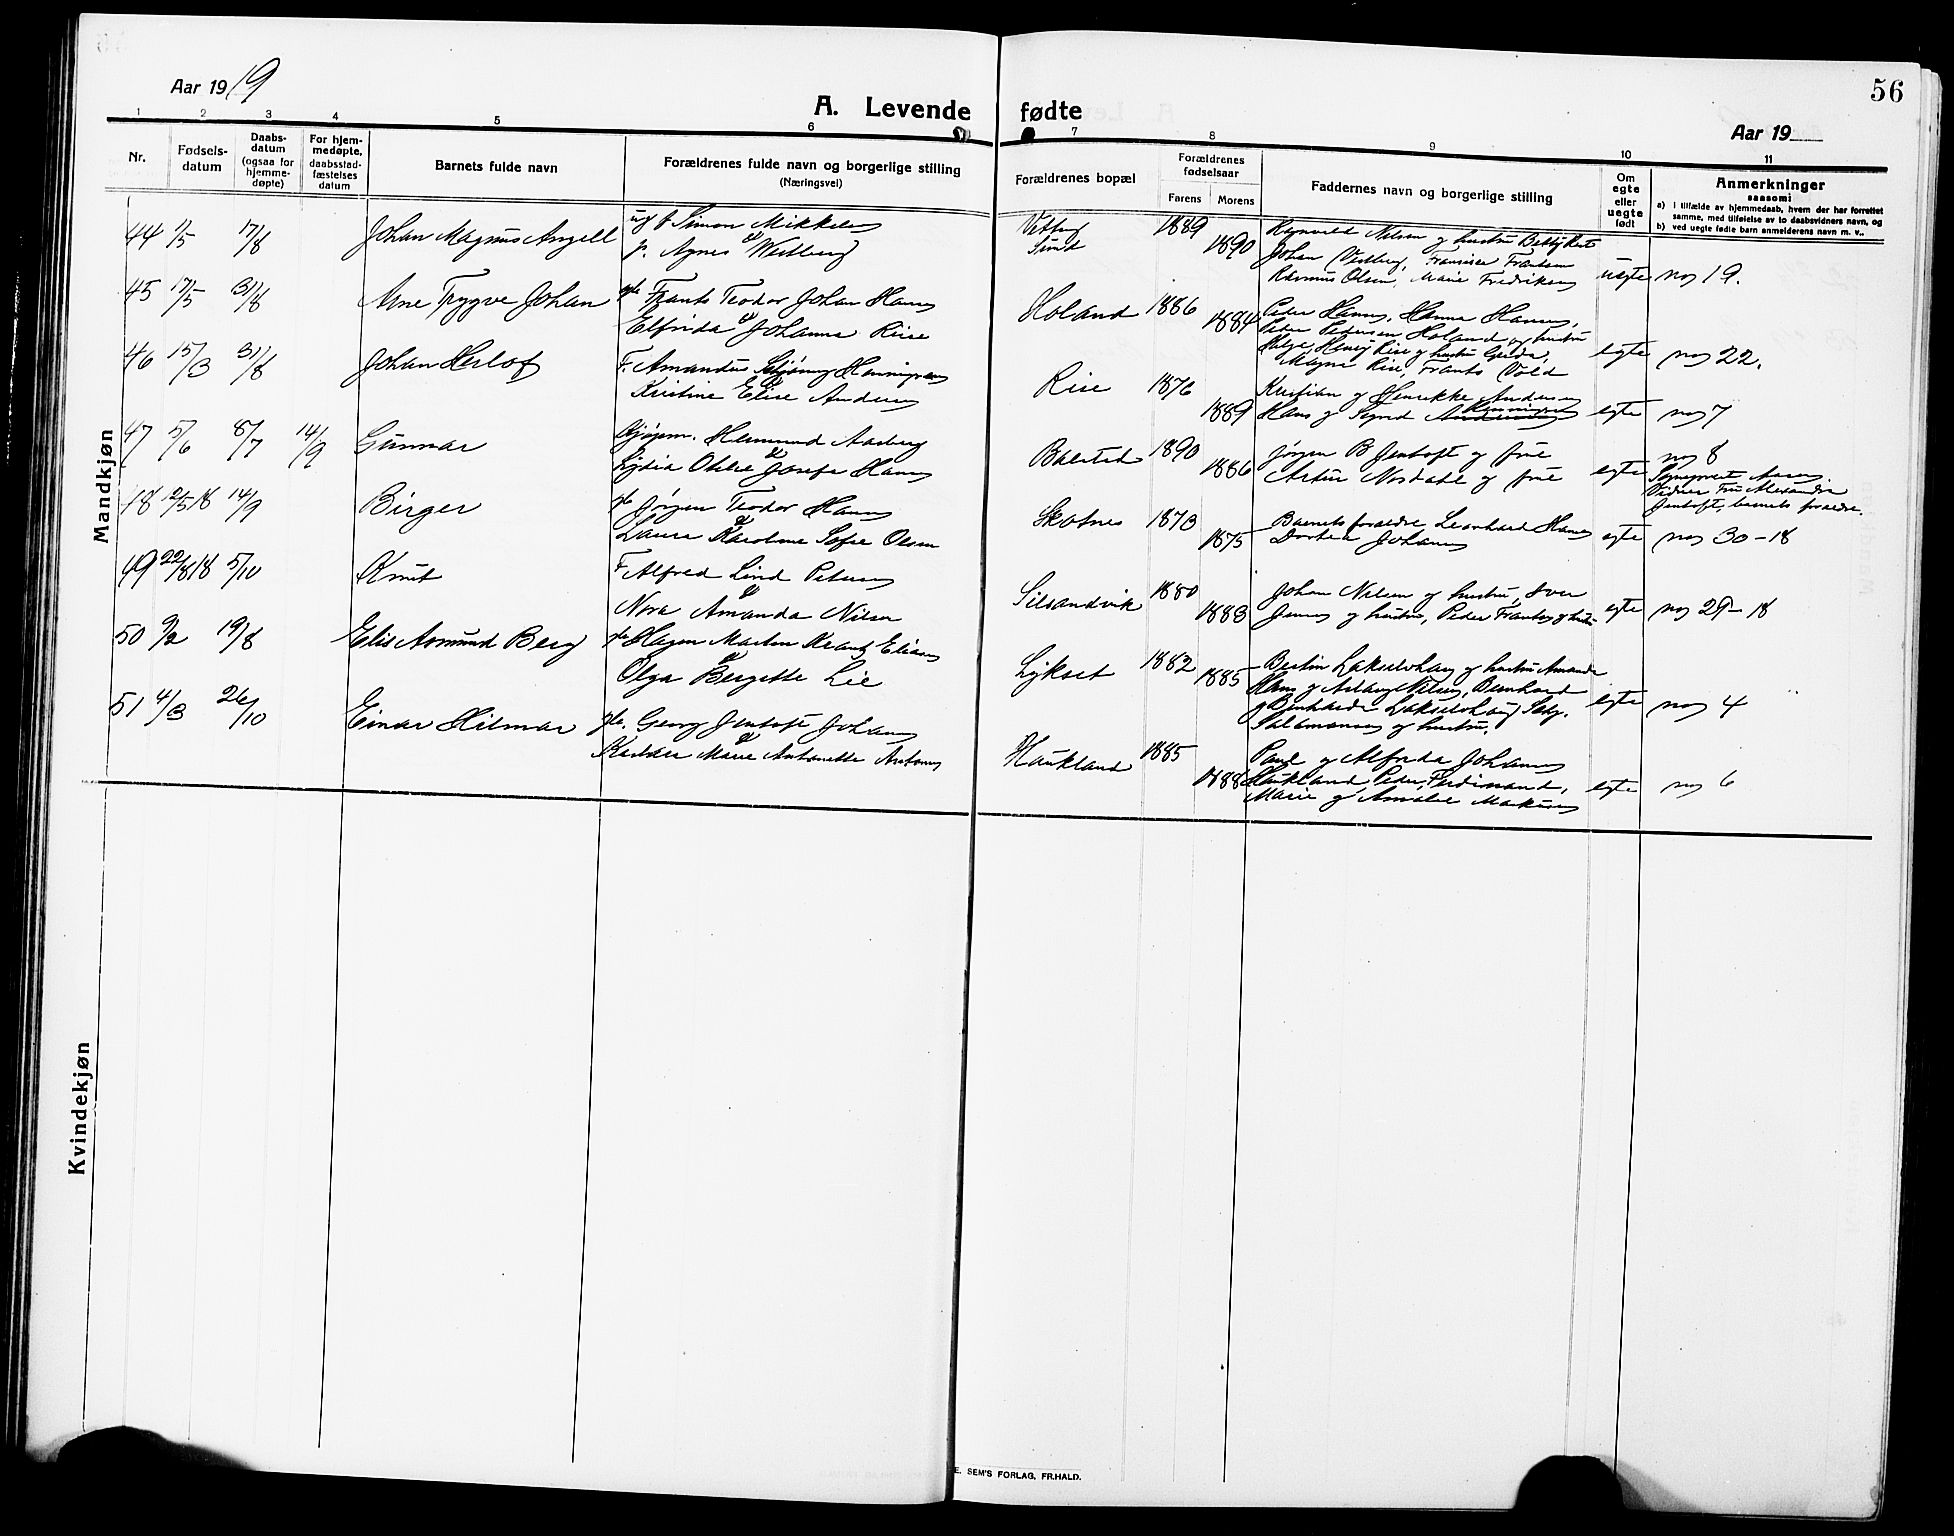 Aar 1919
A. Levende fødte
56
Aar 19
1 2 3 4 5 6 7 8 9 10 11
Nr.
Fødsels-
datum
Daabs-
datum
(ogsaa for
hjemme-
døpte)
For hjem-
medøpte,
daabsstad-
fæstelses
datum
Barnets fulde navn
Forældrenes fulde navn og borgerlige stilling
(Næringsvei)
Forældrenes bopæl
Forældrenes
fødselsaar
Farens Morens
Faddernes navn og borgerlige stilling
Om
egte
eller
uegte
født
Anmerkninger
saasom:
a) i tilfælde av hjemmedaab, hvem der har forrettet
samme, med tilføielse av to daabsvidners navn, og
b) ved uegte fødte barn anmelderens navn m. v.
Mandkjøn
44 1/5 17/8 Johan Magnus Angell ug f Simon Mikkelsen
p. Agnes Westberg
Sund 1889 1890
Reynold Nilsen og hustru
Johan Westberg, Fransiske Frantsen
Rasmus Olsen, Marie Fredriksen
uegte no 19.
45 17/5 31/8 Arne Trygve Johan Frants Teodor Johan Hansen
Elfrida Johanna Riise
Holand 1886 1884
Peder Hansen, Hanna Hansen,
Peder Pedersen Holand og hustru
Helge Henry Rise og hustru Gerda,
Magne Rise, Frants Vold
egte no 22.
46 15/3 31/8 Johan Herlof F. Amandus Henningsen
Kristine Elise Andersen
Rise 1876 1889
Kristian og Henrikke Andersen
Hans og Signe Henningsen
egte no 7
47 5/6 8/7 14/9 Gunnar Gjøgm. Hermund Aasberg
Lydia Otilie Josefa Hansen
Balstad 1890 1886
Jørgen B Jentoft og frue
Artur Nordahl og frue
egte no 8
Vidner Fru Alexandra
Jentoft, barnets forældre.
18 12/5 18 14/9 Birger Jørgen Teodor Hansen
Laura Karoline Sofie Olsen
Skotnes 1873 1875
Barnets forældre, Leonhard Hansen
Dortea Johansen
egte no 30-18
49 22/8 18 5/10 Knut F Alfred Lind Petersen
Nora Amanda Nilsen
Silsandvik 1880 1883
Johan Nilsen og hustru,
Jensen og hustru, Peder Frantsen og hustru
egte no 29-18
50 9/2 19/8 Elis Asmund Berg Hagen Martin Krantz Eliasen
Olga Bergette Lie
Lykset 1882 1885
Bertin Lakselvhaug og hustru Amanda
Hans og Aslaug Nilsen, Bernhard
og Bernharda Lakselvhaug
Salomonsen og hustru.
egte no 4
51 4/3 26/10 Einar Hilmar Georg Jentoft Johansen
Marie Antonette Antonsen
Haukland 1885 1888
Paul og Alfrida Johansen
Haukland, Peder, Ferdinand,
Marie og Amalie Markussen
egte no 6
Kvindekjøn
E. SEM'S FORLAG, FR.HALD.